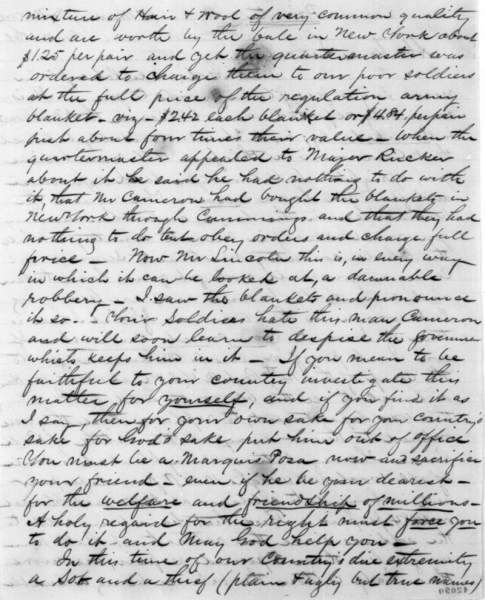 mixture of Hair & Wool of very common quality
and are worth by the bale in New York about
$1.25 per pair and yet the quartermaster was
ordered to charge them to our poor soldiers
at the full price of the regulation army
blanket - viz - $2.42 each blanket or $4.84 per pair
just about four times their value - When the
quartermaster appealed to Major Rucker
about it he said he had nothing to do with
it, that Mr Cameron had bought the blankets in
New York through Cummings and that they had
nothing to do but obey orders and charge full
price - Now Mr Lincoln this is, in every way
in which it can be looked at, a damnable
robbery - I saw the blankets and pronounce
it so. - Your Soldiers hate this man Cameron
and will soon learn to despise the
which keeps him in it - If you mean to be
faithful to your country investigate this
matter, for yourself, and if you find it as
I say, then for your own sake for your Country's
sake for God's sake put him out of office
You must be a Marquis Posa now and sacrifice
your friend - even if he be your dearest -
for the welfare and friendship of millions -
A holy regard for the right must force you
to do it and May God help you -
In this time of our Country's dire extremity
a Sot and a thief (plain & ugly but true names)